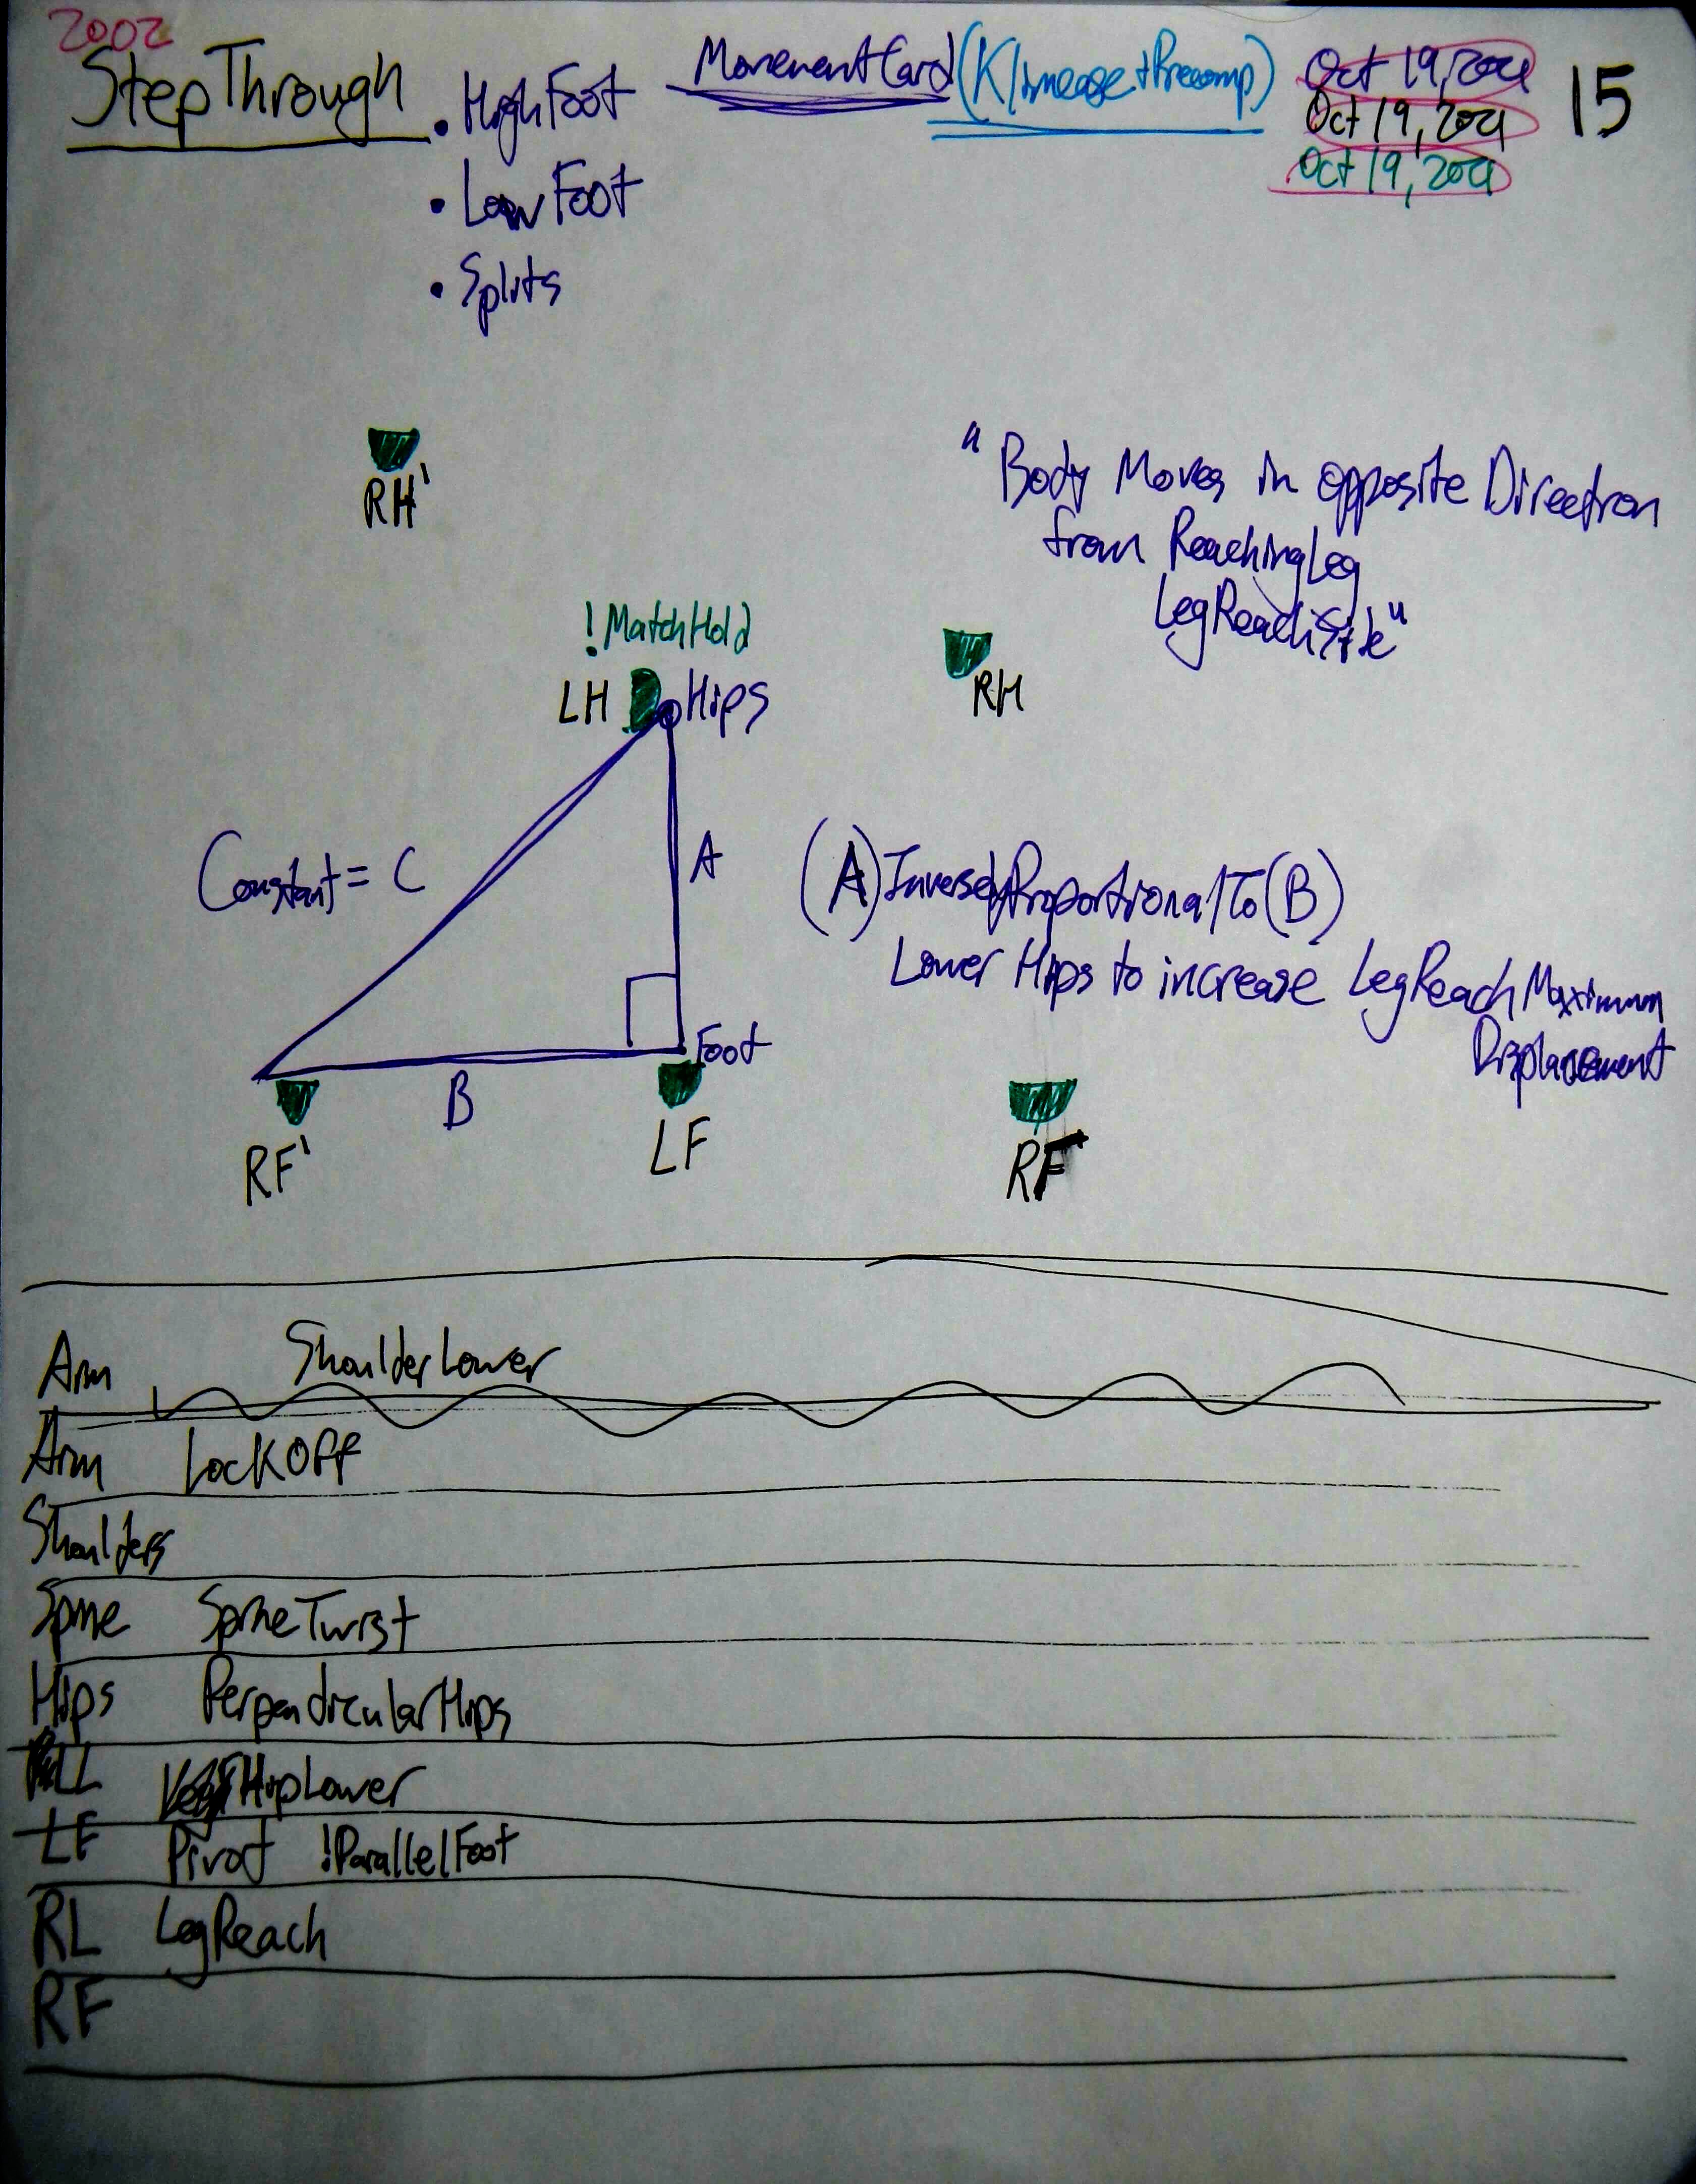 2002
StepThrough
• HighFoot
• LowFoot
• Splits
MovementCard (Klineage + Precomp)
Oct 19, 2021
Oct 19, 2021
Oct 19, 2021
15
RH'
"Body Moves in opposite Direction
from ReachingLeg
LegReachSide"
!MatchHold
LH
Hips
RH
Constant = C
A
(A) InverselyProportionalTo (B)
Lower Hips to increase LegReach Maximum
Displacement
Foot
B
RF'
LF
RF
Arm ShoulderLower
Arm LockOff
Shoulders
Spine SpineTwist
Hips PerpendicularHips
LL HipLower
LF Pivot !ParallelFoot
RL LegReach
RF